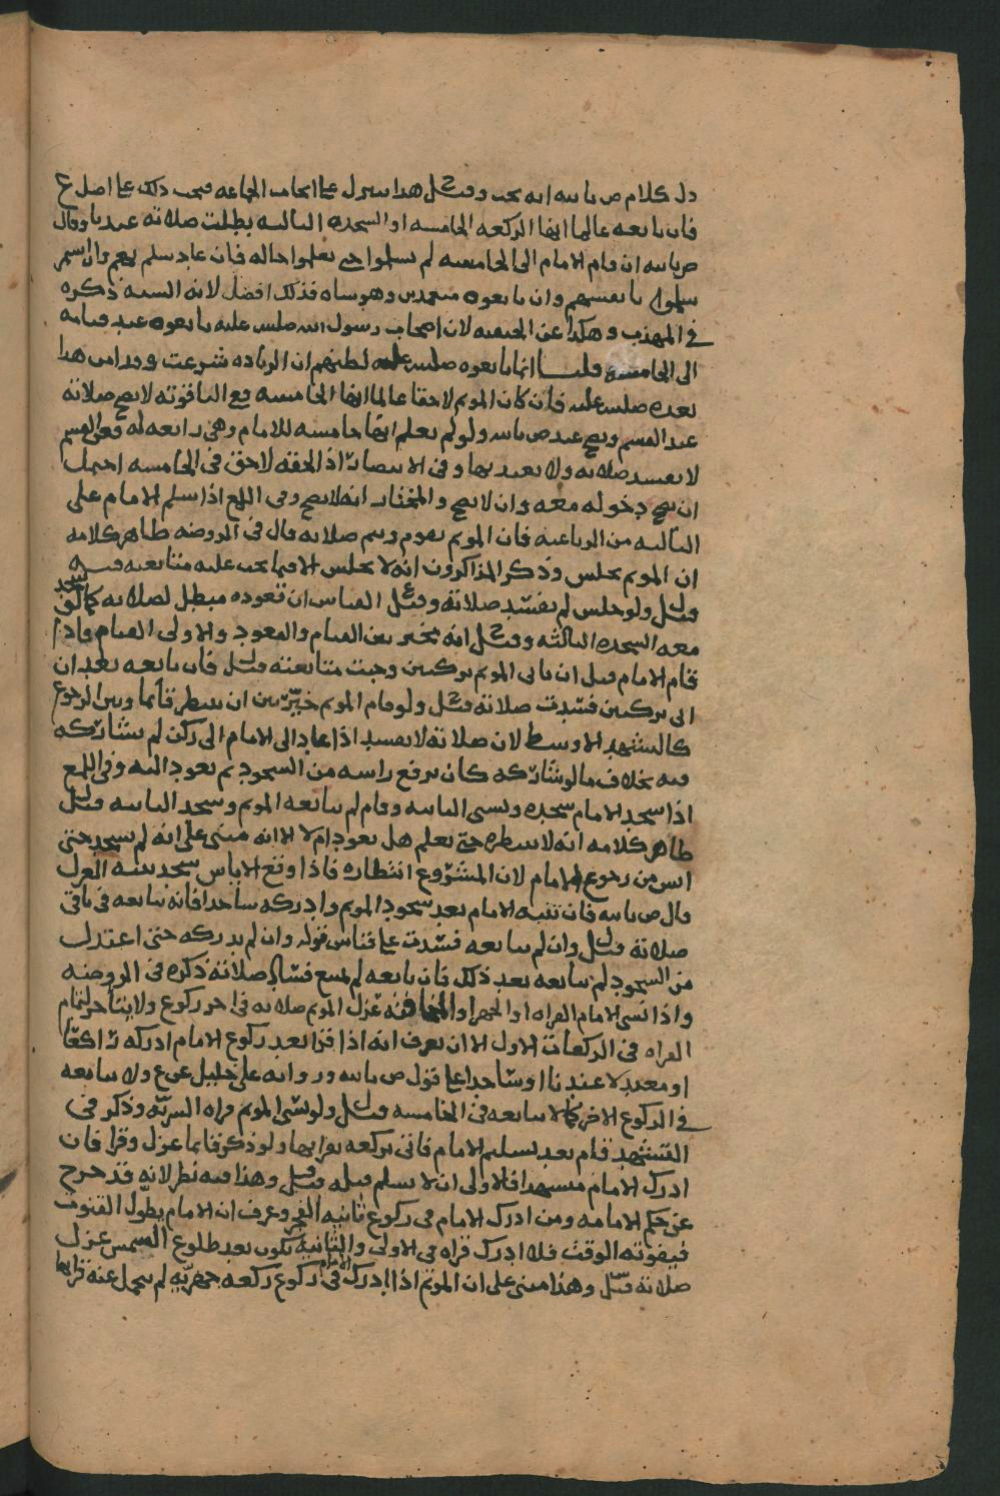 دل كلام ص بالله انه يجب وقيل هذا ينزل على ايجاب الجماعه فيجب ذلك على اصل ع
فان تابعه عالما انها الركعه الخامسه او السجده الثالثه بطلت صلاته عندنا وقال
ص بالله ان قام الامام الى الخامسه لم يسلموا حتى يعلموا حاله فان عاد سلم بهم وان استمر
سلموا لانفسهم وان تابعوه متعمدين وهو ساه فذلك افضل لانه السنه ذكره
في المهذب وهكذا عن الحنفيه لان اصحاب رسول الله صلى الله عليه تابعوه عند قيامه
الى الخامسه قلنا انما تابعوه صلى الله عليه لظنهم ان الزياده شرعت وقد امن هذا
بعده صلى الله عليه فان كان المؤتم لاحقا عالما انها الخامسه مع الباقوته لا يصح صلاته
عند القسم ويصح عند ص بالله ولو لم يعلم انها خامسه للامام وهي رابعه له فعن القسم
لا تفسد صلاته ولا يعتد بها وفي الانتصار اذا لحقه لاحق في الخامسه احتمل
ان يصح دخوله معه وان لا يصح والمختار انه لا يصح وفي اللمع اذا سلم الامام على
الثالثه من الرباعيه فان المؤتم يقوم ويتم صلاته قال في الروضه ظاهر كلامه
ان المؤتم يجلس وذكر المذاكرون انه لا يجلس الا فيما يجب عليه متابعته فيه
قيل ولو جلس لم تفسد صلاته وقيل القياس ان قعوده مبطل لصلاته كما لو سجد
معه السجده الثالثه وقيل انه يخير بين القيام والقعود والاولى القيام واذا
قام الامام قبل ان ياتي المؤتم بركنين وجبت متابعته قيل فان تابعه بعد ان
اتى بركنين فسدت صلاته قيل ولو قام المؤتم خير بين ان ينتظر قائما وبين الرجوع
كالتشهد الاوسط لان صلاته لا تفسد اذا عاد الى الامام الى ركن لم يشاركه
فيه بخلاف ما لو شاركه كان يرفع راسه من السجود ثم يعود اليه وفي اللمع
اذا سجد الامام سجده ونسي الثانيه وقام لم يتابعه المؤتم وسجد الثانيه قيل
ظاهر كلامه انه لا ينتظره حتى يعلم هل يعود ام لا الا انه مبني على انه لم يسجد حتى
ايس من رجوع الامام لان المشروع انتظاره فاذا وقع الاياس سجد بنيه العزل
قال ص بالله فان تنبه الامام بعد سجود المؤتم وادركه ساجدا فانه يتابعه في باقي
صلاته قيل وان لم يتابعه فسدت على قياس قوله وان لم يدركه حتى اعتدل
من السجود لم يتابعه بعد ذلك فان تابعه لم يمتنع فساد صلاته ذكره في الروضه
واذا نسي الامام القراه او الجهر او المخافته عزل المؤتم صلاته في اخر ركوع ولا يتاخر لتمام
القراه في الركعات الاول الا ان يعرف انه اذا قرا بعد ركوع الامام ادركه راكعا
او معتدلا عندنا او ساجدا على قول ص بالله وروايه علي خليل عن ع ولا يتابعه
في الركوع الاخر كما لا يتابعه في الخامسه قيل ولو نسي المؤتم قراه السريه وذكر في
التشهد قام بعد تسليم الامام فاتى بركعه يقرا بها ولو ذكر قائما عزل وقرا فان
ادرك الامام متشهدا فالاولى ان لا يسلم قبله قيل وهذا فيه نظر لانه قد خرج
عن حكم الامامه ومن ادرك الامام في ركوع ثانيه الفجر وعرف ان الامام يطول القنوت
فيفوته الوقت فلا ادرك قراه في الاولى والثانيه تكون بعد طلوع الشمس عزل
صلاته قيل وهذا مبني على ان المؤتم اذا ادرك الامام في ركوع ركعه جهريه لم يتحمل عنه قراتها